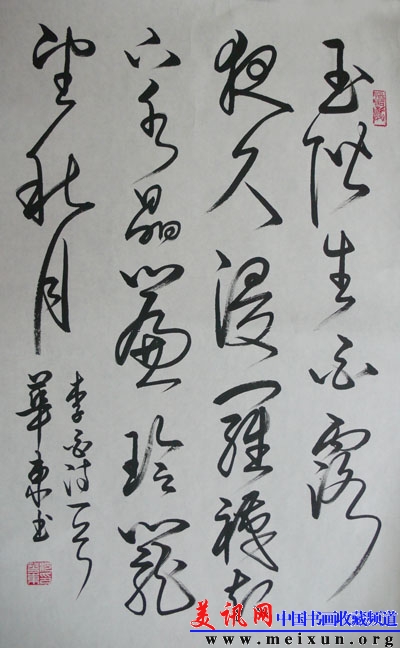 玉階生白露
夜久浸羅襪却
下水晶簾玲瓏
望秋月
李白诗一首
華東书
美讯网 中国书画收藏频道
www.meixun.org